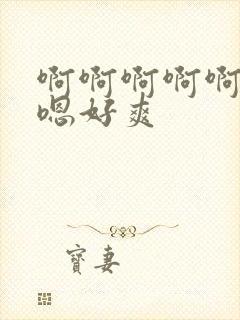 啊啊啊啊啊
嗯好爽
寶妻